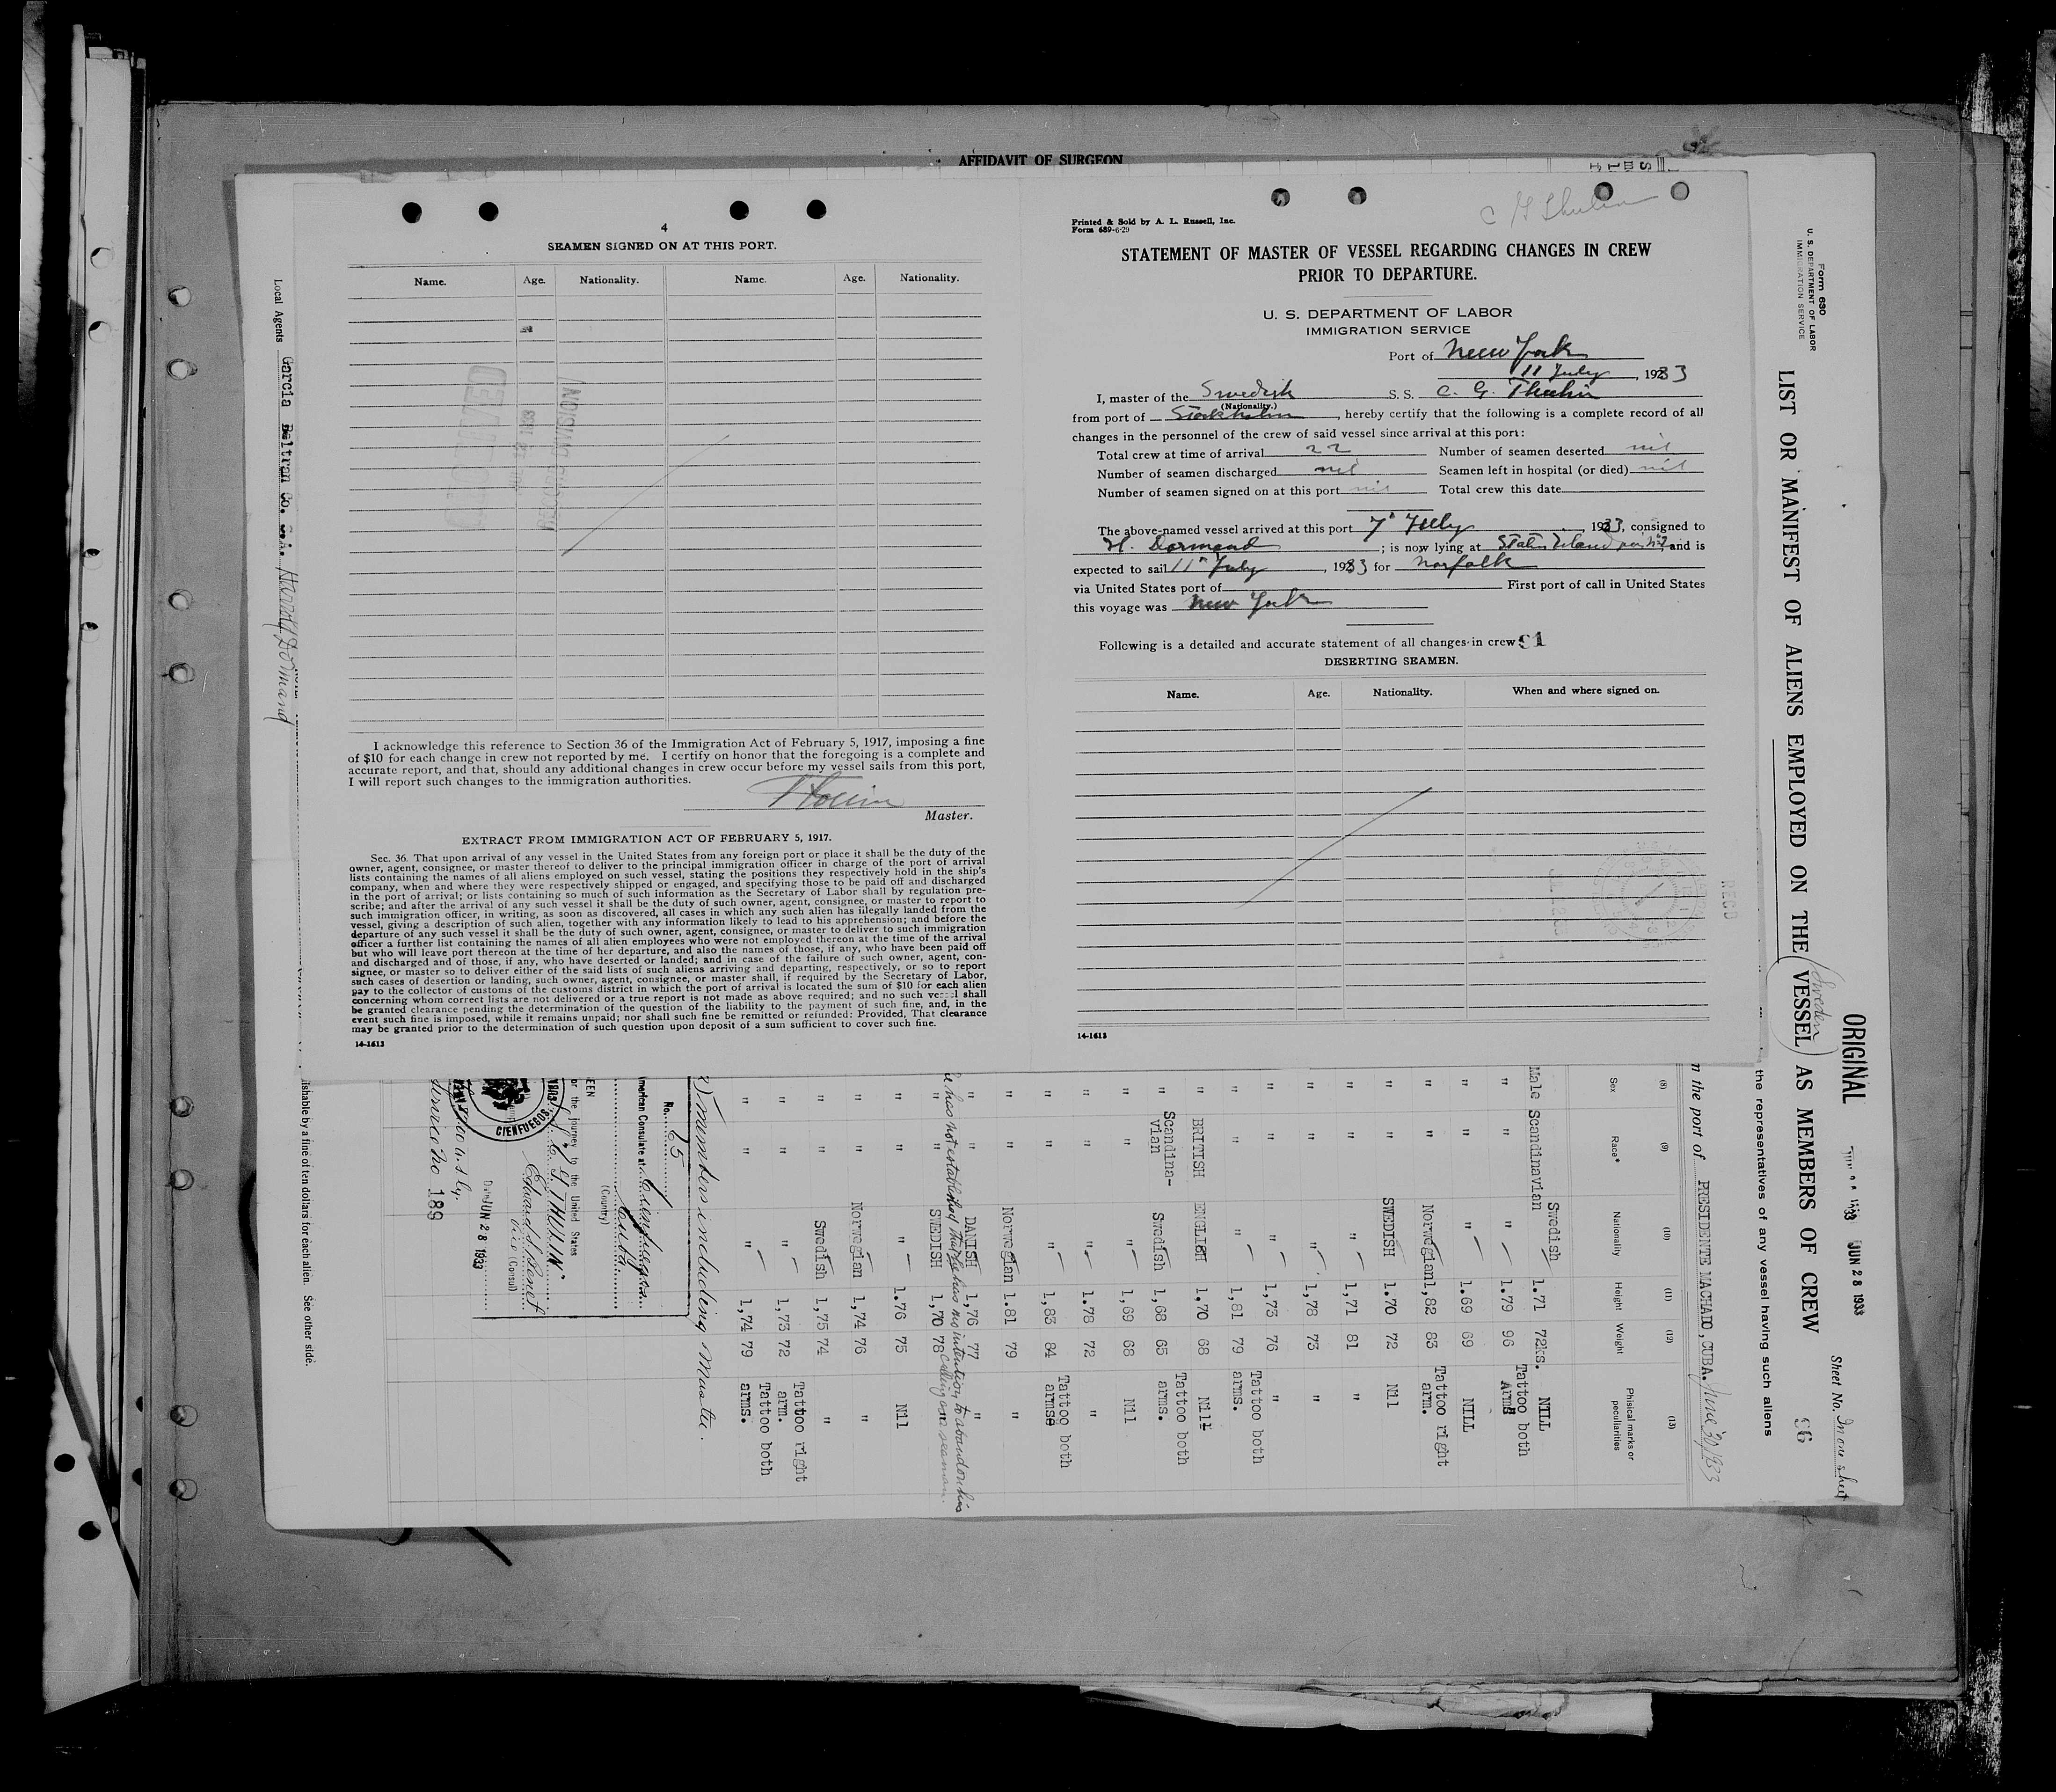 AFFIDAVIT OF SURGEON
4
SEAMEN SIGNED ON AT THIS PORT.
Name. Age. Nationality. Name. Age. Nationality.
I acknowledge this reference to Section 36 of the Immigration Act of February 5, 1917, imposing a fine
of $10 for each change in crew not reported by me. I certify on honor that the foregoing is a complete and
accurate report, and that, should any additional changes in crew occur before my vessel sails from this port,
I will report such changes to the immigration authorities.
Master.
EXTRACT FROM IMMIGRATION ACT OF FEBRUARY 5, 1917.
Sec. 36. That upon arrival of any vessel in the United States from any foreign port or place it shall be the duty of the
owner, agent, consignee, or master thereof to deliver to the principal immigration officer in charge of the port of arrival
lists containing the names of all aliens employed on such vessel, stating the positions they respectively hold in the ship's
company, when and where they were respectively shipped or engaged, and specifying those to be paid off and discharged
in the port of arrival; or lists containing so much of such information as the Secretary of Labor shall by regulation pre-
scribe; and after the arrival of any such vessel it shall be the duty of such owner, agent, consignee, or master to report to
such immigration officer, in writing, as soon as discovered, all cases in which any such alien has illegally landed from the
vessel, giving a description of such alien, together with any information likely to lead to his apprehension; and before the
departure of any such vessel it shall be the duty of such owner, agent, consignee, or master to deliver to such immigration
officer a further list containing the names of all alien employees who were not employed thereon at the time of the arrival
but who will leave port thereon at the time of her departure, and also the names of those, if any, who have been paid off
and discharged and of those, if any, who have deserted or landed; and in case of the failure of such owner, agent, con-
signee, or master so to deliver either of the said lists of such aliens arriving and departing, respectively, or so to report
such cases of desertion or landing, such owner, agent, consignee, or master shall, if required by the Secretary of Labor,
pay to the collector of customs of the customs district in which the port of arrival is located the sum of $10 for each alien
concerning whom correct lists are not delivered or a true report is not made as above required; and no such vessel shall
be granted clearance pending the determination of the question of the liability to the payment of such fine, and, in the
event such fine is imposed, while it remains unpaid; nor shall such fine be remitted or refunded: Provided, That clearance
may be granted prior to the determination of such question upon deposit of a sum sufficient to cover such fine.
14-1613
C G Thulin
Printed & Sold by A. L. Russell, Inc.
Form 689-6-29
STATEMENT OF MASTER OF VESSEL REGARDING CHANGES IN CREW
PRIOR TO DEPARTURE.
U. S. DEPARTMENT OF LABOR
IMMIGRATION SERVICE
Port of New York
11 July, 1933
I, master of the Swedish S. S. C. G. Thulin
(Nationality.)
from port of Stockholm, hereby certify that the following is a complete record of all
changes in the personnel of the crew of said vessel since arrival at this port:
Total crew at time of arrival 22 Number of seamen deserted nil
Number of seamen discharged nil Seamen left in hospital (or died) nil
Number of seamen signed on at this port nil Total crew this date
The above-named vessel arrived at this port 7" July, 1933, consigned to
H. Dormand; is now lying at Staten Island and is
expected to sail 11" July, 1933 for Norfolk
via United States port of First port of call in United States
this voyage was New York
Following is a detailed and accurate statement of all changes in crew 91
DESERTING SEAMEN.
Name. Age. Nationality. When and where signed on.
14-1613
Local Agents Garcia Beltran Co. S.A. Harold Dormand
Form 630
U. S. DEPARTMENT OF LABOR
IMMIGRATION SERVICE
ORIGINAL
JUN 28 1933
Sheet No. In one sheet
Sweden
LIST OR MANIFEST OF ALIENS EMPLOYED ON THE VESSEL AS MEMBERS OF CREW
96
the representatives of any vessel having such aliens
the port of PRESIDENTE MACHADO, CUBA. June 30/933
RECD
(8) (9) (10) (11) (12) (13)
Sex Race* Nationality Height Weight Phisical marks or peculiarities
Male Scandinavian Swedish 1.71 72ks. NILL
" " " 1.79 96 Tattoo both Arms
" " " 1.69 69 NILL
" " Norwegian 1,82 83 Tattoo right arm.
" " SWEDISH 1.70 72 Nil
" " " 1,71 81 "
" " " 1,78 73 "
" " " 1,73 76 "
" " " 1,81 79 Tattoo both arms.
" BRITISH ENGLISH 1.70 68 Nil
" Scandina-vian Swedish 1,68 65 Tattoo both arms.
" " " 1,69 68 Nil
" " " 1.78 72 "
" " " 1,83 84 Tattoo both arms
" " Norwegian 1.81 79 "
" " DANISH 1,76 77 "
he has not established that he has no intention to abandon his
calling as a seaman.
" " SWEDISH 1,70 78 "
" " " 1.76 75 Nil
" " Norwegian 1,74 76 "
" " Swedish 1,75 74 "
" " " 1,73 72 Tattoo right arm.
" " " 1,74 79 Tattoo both arms.
members including Master.
No. 65
American Consulate at Cienfuegos
Cuba
(Country)
SEEN
for the journey to the United States
C G THULIN.
Vice (Consul)
Date JUN 28 1933
CIENFUEGOS
189
ishable by a fine of ten dollars for each alien. See other side.